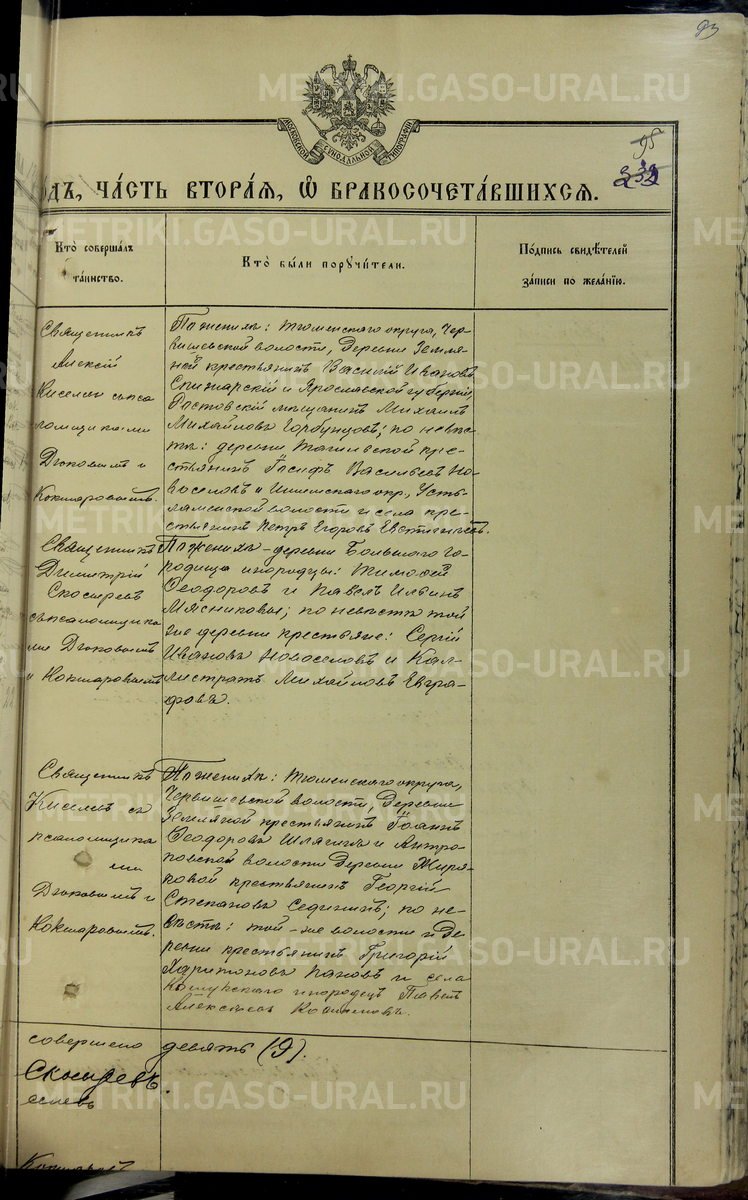 93
МОСКОВСКОЙ СѴНОДАЛЬНОЙ ТИПОГРАФІИ
95
232
ОДЪ, ЧАСТЬ ВТОРАЯ, Ѿ БРАКОСОЧЕТАВШИХСЯ.
Кто совершалъ
таинство.
Кто были поручители.
Подпись свидѣтелей
записи по желанію.
Священникъ
Алексій
Киселевъ съ пса
ломщиками
Дюковымъ и
Кокшаровымъ.
По женихѣ: Тюменскаго округа, Чер-
вишевской волости, Деревни Земля-
ной крестьянинъ Василій Ивановъ
и Ярославской губерніи,
Ростовскій мѣщанинъ Михаилъ
Михайловъ Горбунцовъ; по невѣс-
тѣ: деревни крес-
тьянинъ Іосифъ Васильевъ Но-
воселовъ и Ишимскаго окр., Усть-
ламенской волости и села кре-
стьянинъ Петръ Егоровъ Евстигнѣевъ.
Священникъ
Димитрій
Скосыревъ
съ псаломщика
ми Дюковымъ
и Кокшаровымъ
По женихѣ - деревни Большаго Го-
родища инородцы: Тимофей
Ѳеодоровъ и Павелъ Ильинъ
Мясниковы; по невѣстѣ той
же деревни крестьяне: Сергій
Ивановъ Новоселовъ и Кал-
листратъ Михайловъ Евгра-
фовъ.
Священникъ
Киселевъ съ
псаломщика
ми
Дюковымъ и
Кокшаровымъ.
По женихѣ: Тюменскаго округа,
Червишевской волости, Деревни
Земляной крестьянинъ Іоаннъ
Ѳеодоровъ Шлягинъ и Антро-
повской волости Деревни Жиря-
ковой крестьянинъ Георгій
Степановъ Сединкинъ; по не-
вѣстѣ: той-же волости и Де-
ревни крестьянинъ Григорій
Харитоновъ Пановъ и села
инородецъ Павелъ
Алексѣевъ
совершено девять (9).
Скосыревъ.
елевъ
Кокшаровъ
METRIKI.GASO-URAL.RU